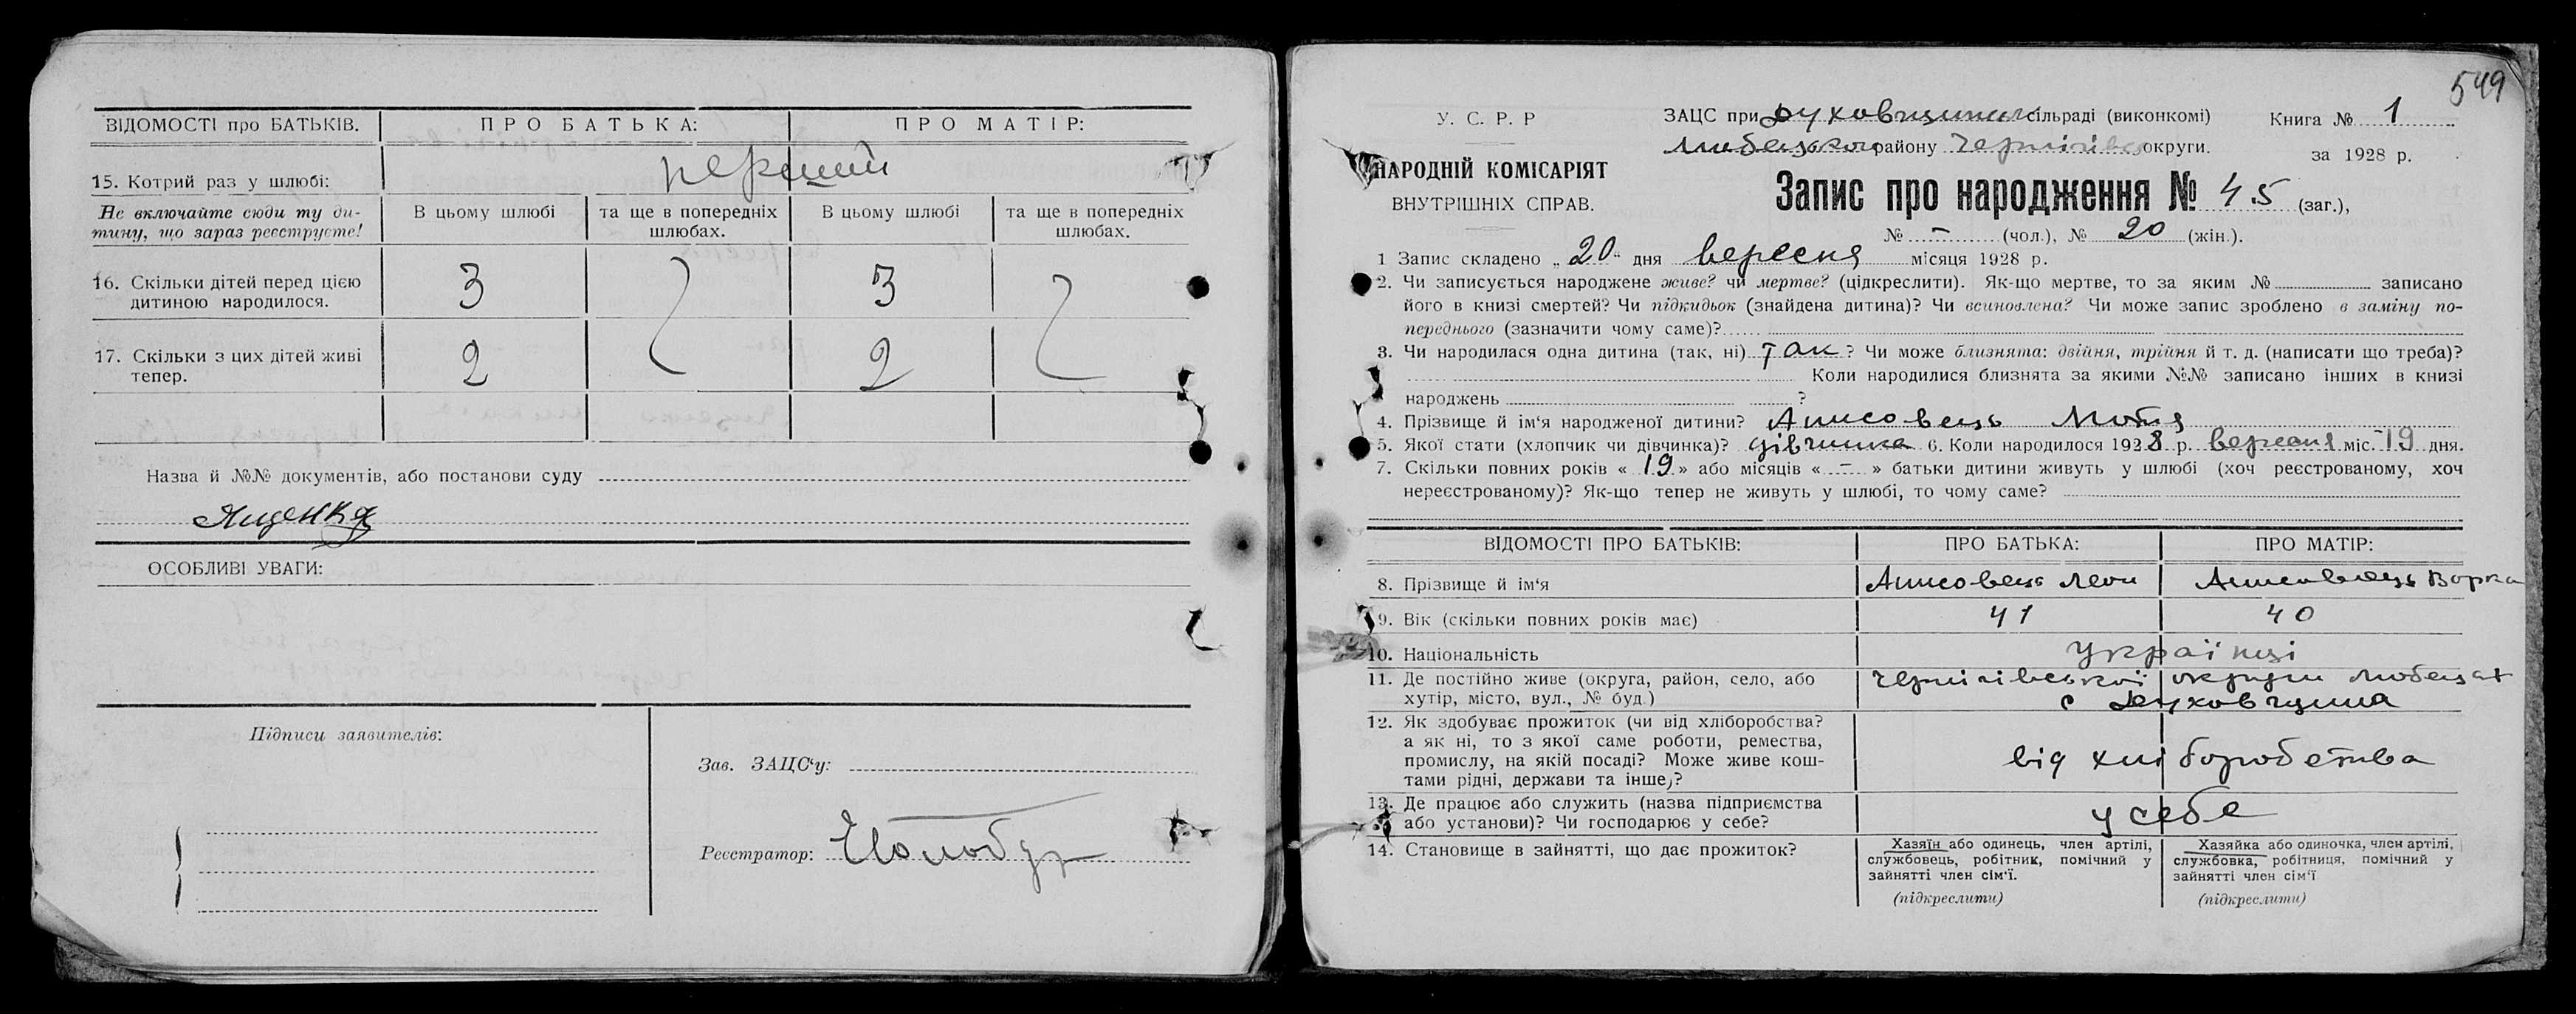 ВІДОМОСТІ про БАТЬКІВ. ПРО БАТЬКА: ПРО МАТІР:
15. Котрий раз у шлюбі: перший
Не включайте сюди ту ди-
тину, що зараз реєструєте!
В цьому шлюбі
та ще в попередніх
шлюбах.
В цьому шлюбі
та ще в попередніх
шлюбах.
16. Скільки дітей перед цією
дитиною народилося.
3 3
17. Скільки з цих дітей живі
тепер.
2 2
Назва й №№ документів, або постанови суду
Ященкя
ОСОБЛИВІ УВАГИ:
Підписи заявителів:
Зав. ЗАЦС'у:
Реєстратор:
549
У. С. Р. Р
НАРОДНІЙ КОМІСАРІЯТ
ВНУТРІШНІХ СПРАВ.
ЗАЦС при Духовщинській сільраді (виконкомі)
Любецького району Чернігівс округи.
Книга № 1
за 1928 р.
Запис про народження № 45 (заг.),
№ – (чол.), № 20 (жін.).
1 Запис складено „ 20 " дня вересня місяця 1928 р.
2. Чи записується народжене живе? чи мертве? (підкреслити). Як-що мертве, то за яким № записано
його в книзі смертей? Чи підкидьок (знайдена дитина)? Чи всиновлена? Чи може запис зроблено в заміну по-
переднього (зазначити чому саме)?
3. Чи народилася одна дитина (так, ні) так ? Чи може близнята: двійня, трійня й т. д. (написати що треба)?
Коли народилися близнята за якими №№ записано інших в книзі
народжень ?
4. Прізвище й ім'я народженої дитини? Анисовець Мотя
5. Якої стати (хлопчик чи дівчинка)? дівчинка 6. Коли народилося 1928 р. вересня міс. 19 дня.
7. Скільки повних років « 19 » або місяців « – » батьки дитини живуть у шлюбі (хоч реєстрованому, хоч
нереєстрованому)? Як-що тепер не живуть у шлюбі, то чому саме?
ВІДОМОСТІ ПРО БАТЬКІВ: ПРО БАТЬКА: ПРО МАТІР:
8. Прізвище й ім'я Анисовець Леон Анисовець Ворка
9. Вік (скільки повних років має) 41 40
10. Національність українці
11. Де постійно живе (округа, район, село, або
хутір, місто, вул., № буд.)
Чернігівської округи Любецьк
с Духовщина
12. Як здобуває прожиток (чи від хліборобства?
а як ні, то з якої саме роботи, ремества,
промислу, на якій посаді? Може живе кош-
тами рідні, держави та інше)?
від хліборобства
13. Де працює або служить (назва підприємства
або установи)? Чи господарює у себе?
у себе
14. Становище в зайнятті, що дає прожиток?
Хазяїн або одинець, член артілі,
службовець, робітник, помічний у
зайнятті член сім'ї.
(підкреслити)
Хазяйка або одиночка, член артілі,
службовка, робітниця, помічний у
зайнятті член сім'ї
(підкреслити)